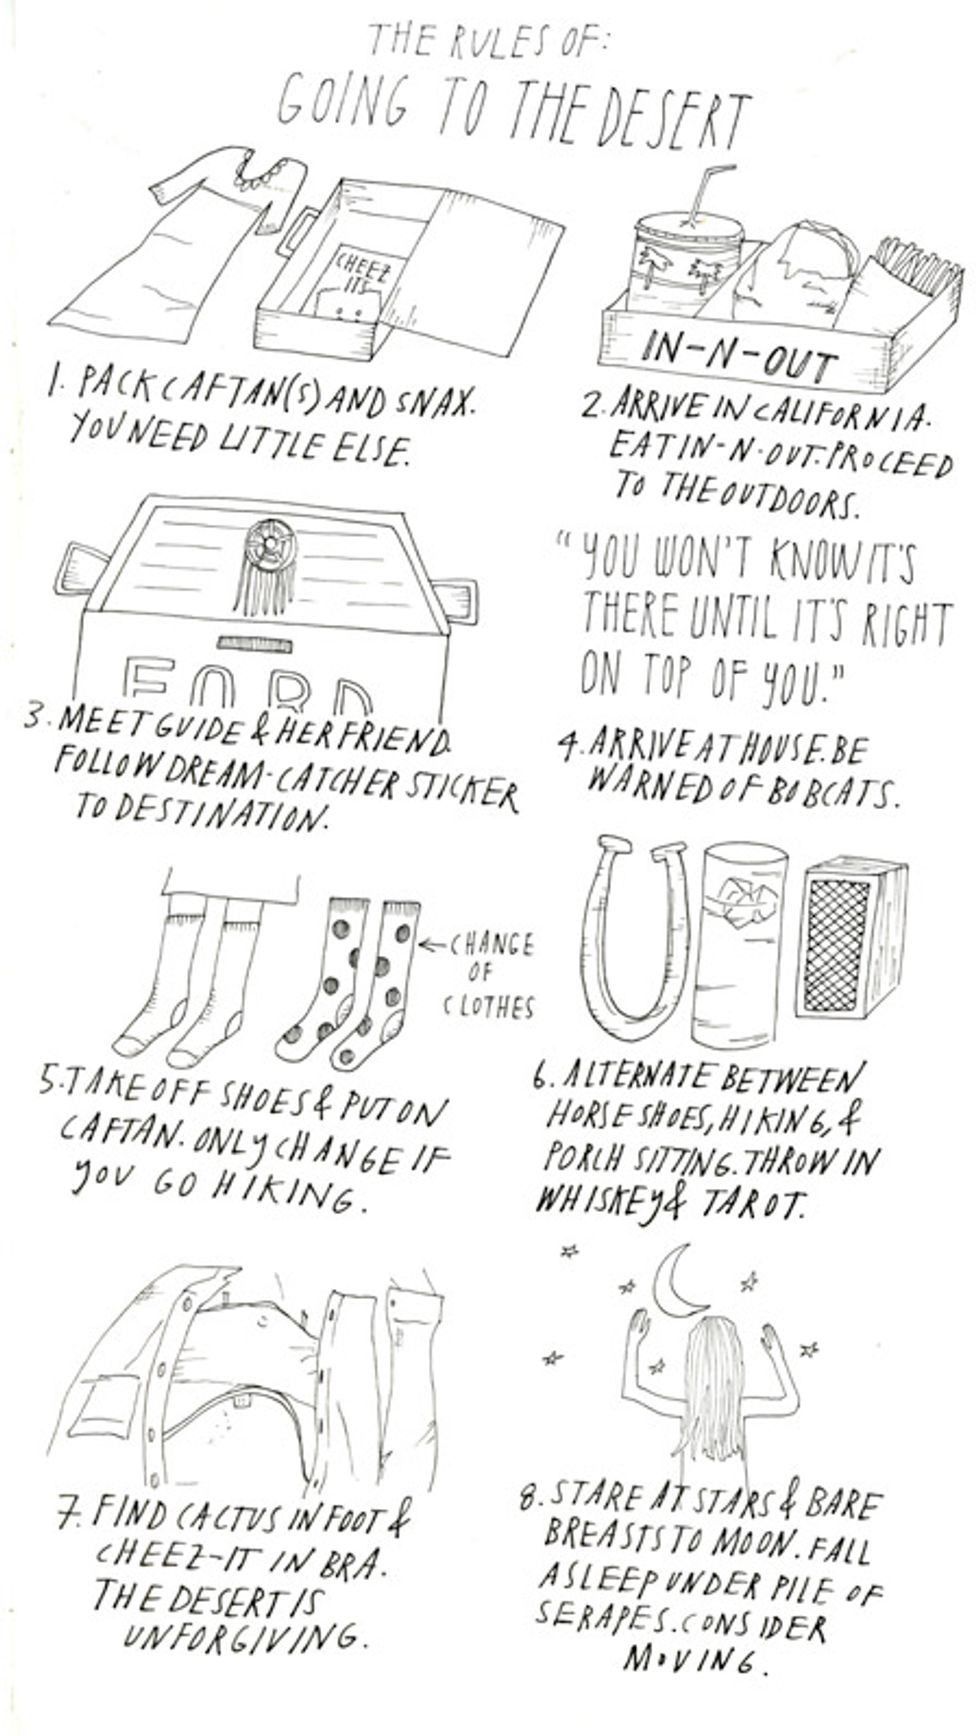 THE RULES OF:
GOING TO THE DESERT
CHEEZ
ITS
1. PACK CAFTAN(S) AND SNAX.
YOU NEED LITTLE ELSE.
IN-N-OUT
2. ARRIVE IN CALIFORNIA.
EAT IN-N-OUT. PROCEED
TO THE OUTDOORS.
FORD
3. MEET GUIDE & HER FRIEND.
FOLLOW DREAM-CATCHER STICKER
TO DESTINATION.
"YOU WON'T KNOW IT'S
THERE UNTIL IT'S RIGHT
ON TOP OF YOU."
4. ARRIVE AT HOUSE. BE
WARNED OF BOBCATS.
CHANGE
OF
CLOTHES
5. TAKE OFF SHOES & PUT ON
CAFTAN. ONLY CHANGE IF
YOU GO HIKING.
6. ALTERNATE BETWEEN
HORSE SHOES, HIKING, &
PORCH SITTING. THROW IN
WHISKEY & TAROT.
7. FIND CACTUS IN FOOT &
CHEEZ-IT IN BRA.
THE DESERT IS
UNFORGIVING.
8. STARE AT STARS & BARE
BREASTS TO MOON. FALL
ASLEEP UNDER PILE OF
SERAPES. CONSIDER
MOVING.